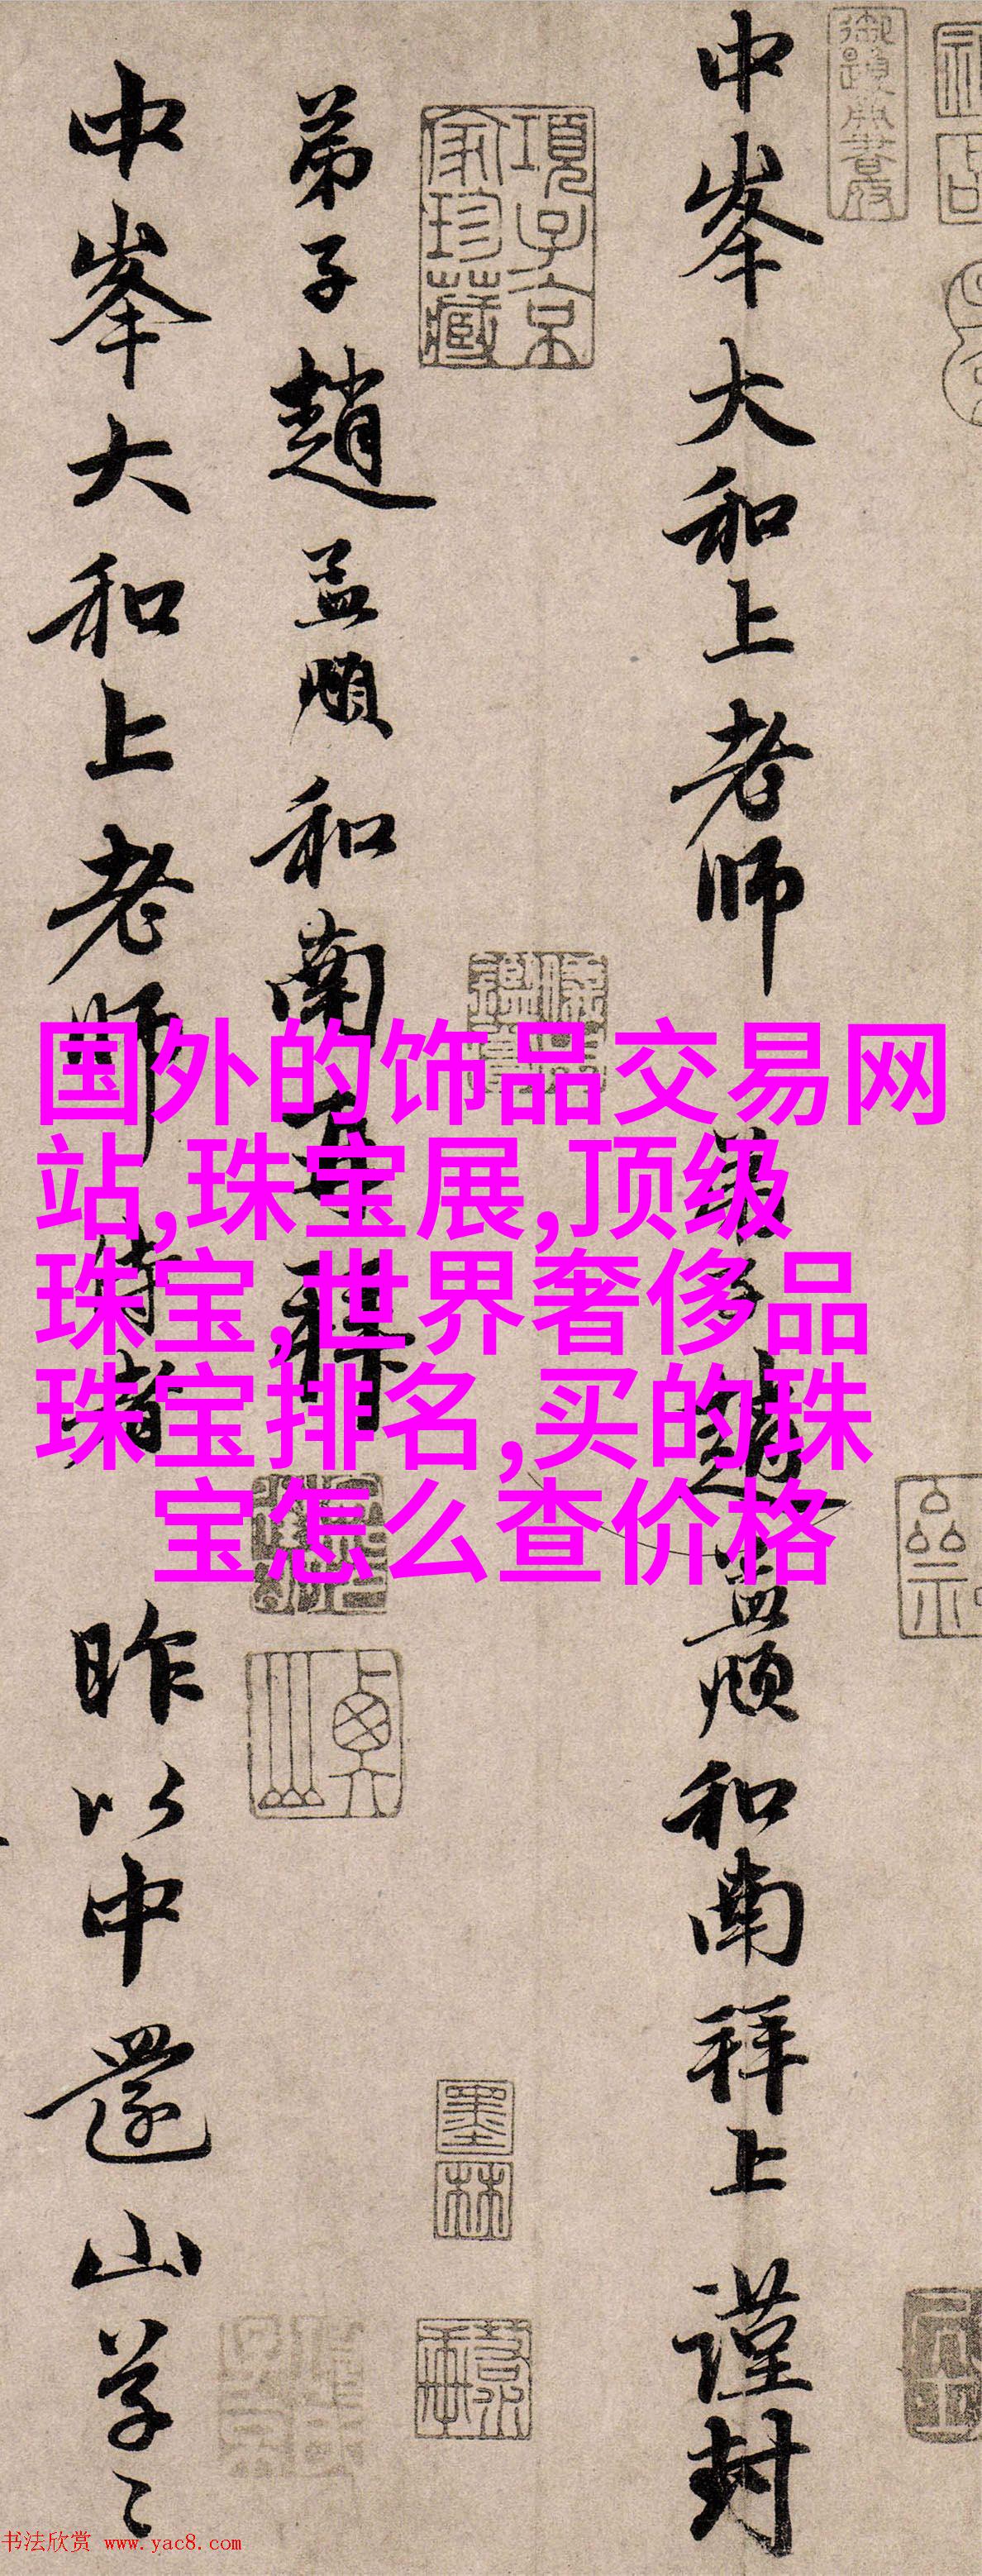 中峯大和上老师
弟子趙孟頫和南拜上
謹封
項子京
家珍藏
弟子趙孟頫和南再拜
中峯大和上老师侍者
昨以中還山草〻
墨
林
国外的饰品交易网
站,珠宝展,顶级
珠宝,世界奢侈品
珠宝排名,买的珠
宝怎么查价格
书法欣赏 www.yac8.com